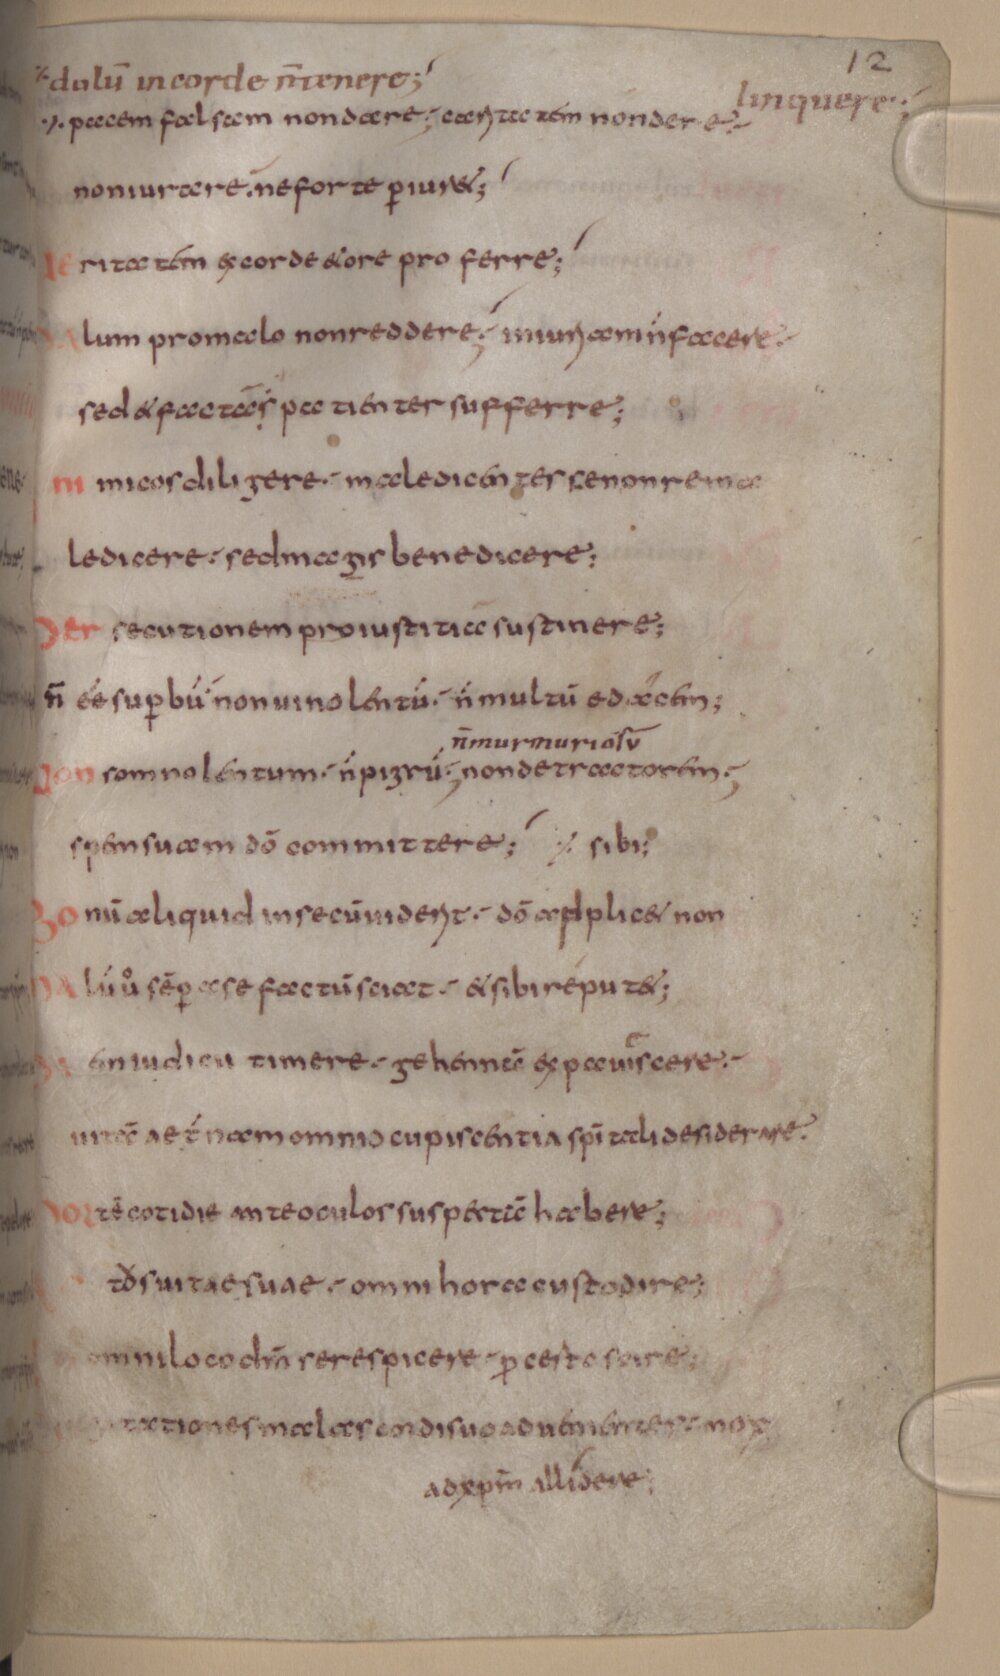 12
dolū in corde n̄ tenere;
⁒ pacem falsam non dare; caritatem non dere-
linquere;
non iurare. ne forte ꝑiur&;
Veritatem ex corde & ore proferre;
Malum pro malo non reddere; iniuriam ń facere.
sed & factā s patienter sufferre;
Inimicos diligere. maledicentes se non rema
ledicere. sed magis benedicere;
Persecutionem pro iustitia sustinere;
n̄ ee suꝑbū non uinolentū. ń multū edacem;
n̄ murmuriosū
Non somnolentum. ń pigrū; non detractorem;
spem suam dō committere; ⁒ sibi;
Bonū aliquid in se cū uiderit. dō applic& non
Malū ů sēꝑ a se factū sciat. & sibi reput&;
em iudicii timere. gehennā expauiscere.
uitā aet́nam omni cupiscentia spītali desiderare.
Mortē cotidie ante oculos suspectā habere;
tꝰ uitae suae. omni hora custodire;
omni loco dm̄ se respicere. ꝑ certo scire;
Cogitationes malas cordi suo aduenientes. mox
ad xpm̄ allidere;